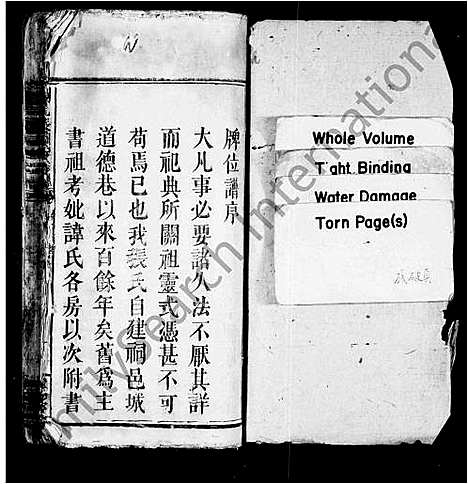 牌位譜序
大凡事必要諸久法不厭其詳
而祀典所關祖靈式憑甚不可
苟焉已也我張氏自建祠邑城
道德巷以來百餘年矣舊爲主
書祖考妣諱氏各房以次附書
Whole Volume
Tight Binding
Water Damage
Torn Page(s)
FamilySearch International